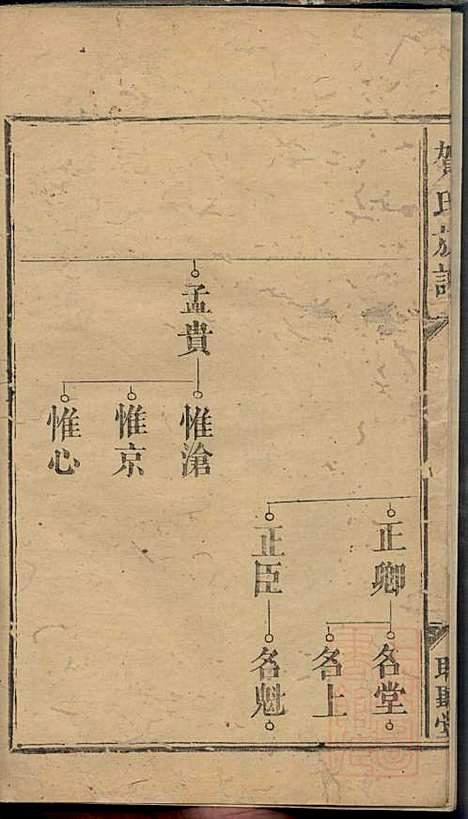 賀氏族譜
孟貴
惟滄
惟京
惟心
正卿
正臣
名堂
名上
名魁